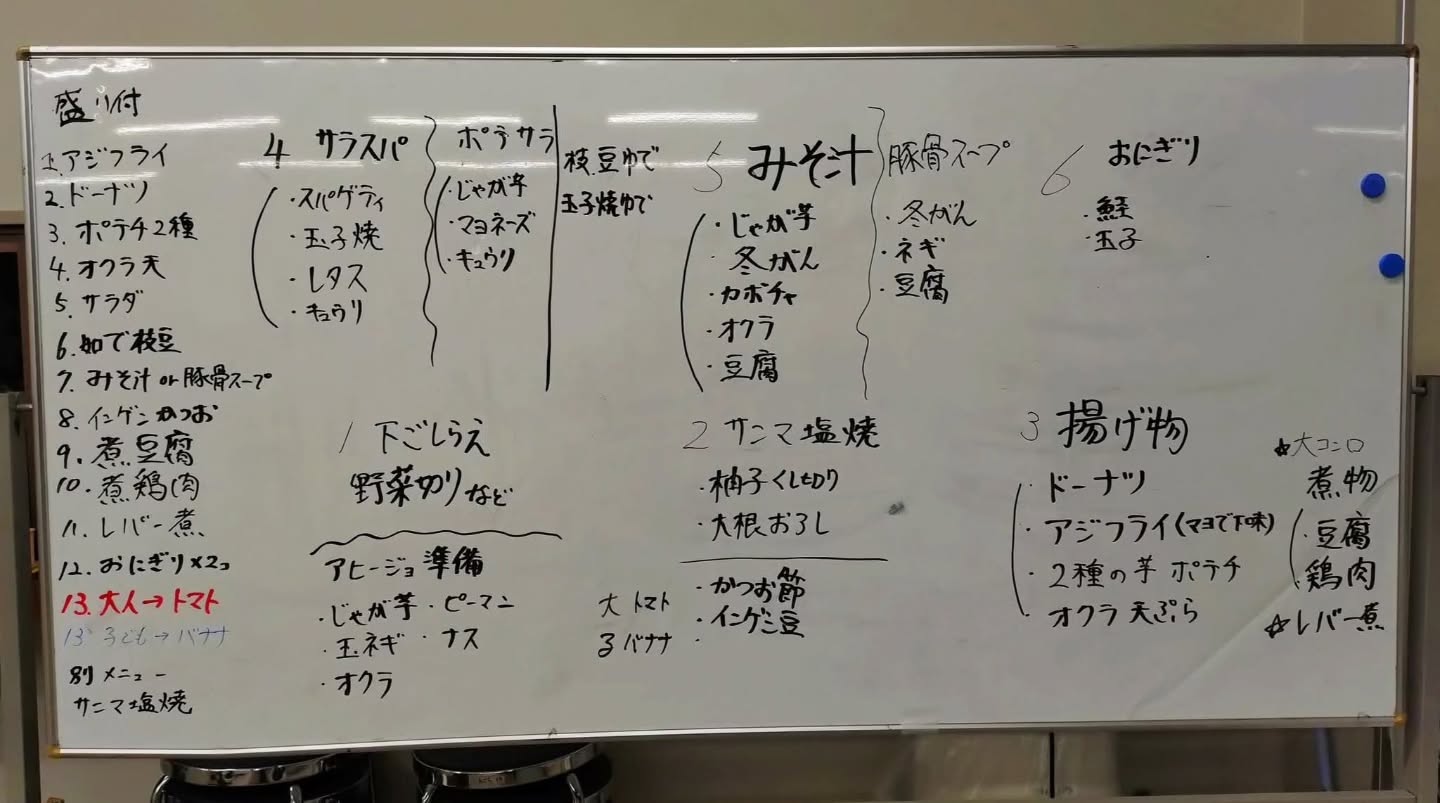 盛り付
1. アジフライ
2. ドーナツ
3. ポテチ2種
4. オクラ天
5. サラダ
6. 茹で枝豆
7. みそ汁 or 豚骨スープ
8. インゲンかつお
9. 煮豆腐
10. 煮鶏肉
11. レバー煮
12. おにぎり×2コ
13. 大人→トマト
13 子ども→バナナ
別メニュー
サンマ塩焼
4 サラスパ
・スパゲティ
・玉子焼
・レタス
・キュウリ
ポテサラ
・じゃが芋
・マヨネーズ
・キュウリ
枝豆ゆで
玉子焼ゆで
5 みそ汁
・じゃが芋
・冬がん
・カボチャ
・オクラ
・豆腐
豚骨スープ
・冬がん
・ネギ
・豆腐
6 おにぎり
・鮭
・玉子
1 下ごしらえ
野菜切りなど
アヒージョ準備
・じゃが芋 ・ピーマン
・玉ネギ ・ナス
・オクラ
大 トマト
子 バナナ
2 サンマ塩焼
・柚子くし切り
・大根おろし
・かつお節
・インゲン豆
3 揚げ物
・ドーナツ
・アジフライ(マヨで下味)
・2種の芋 ポテチ
・オクラ天ぷら
☆大コンロ
煮物
・豆腐
・鶏肉
☆レバー煮